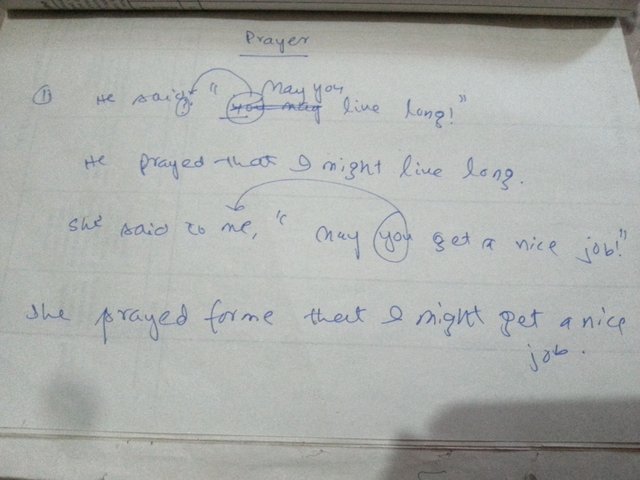 Prayer
① He said, " May you live long!"
He prayed that I might live long.
She said to me, " May you get a nice job!"
She prayed for me that I might get a nice
job.